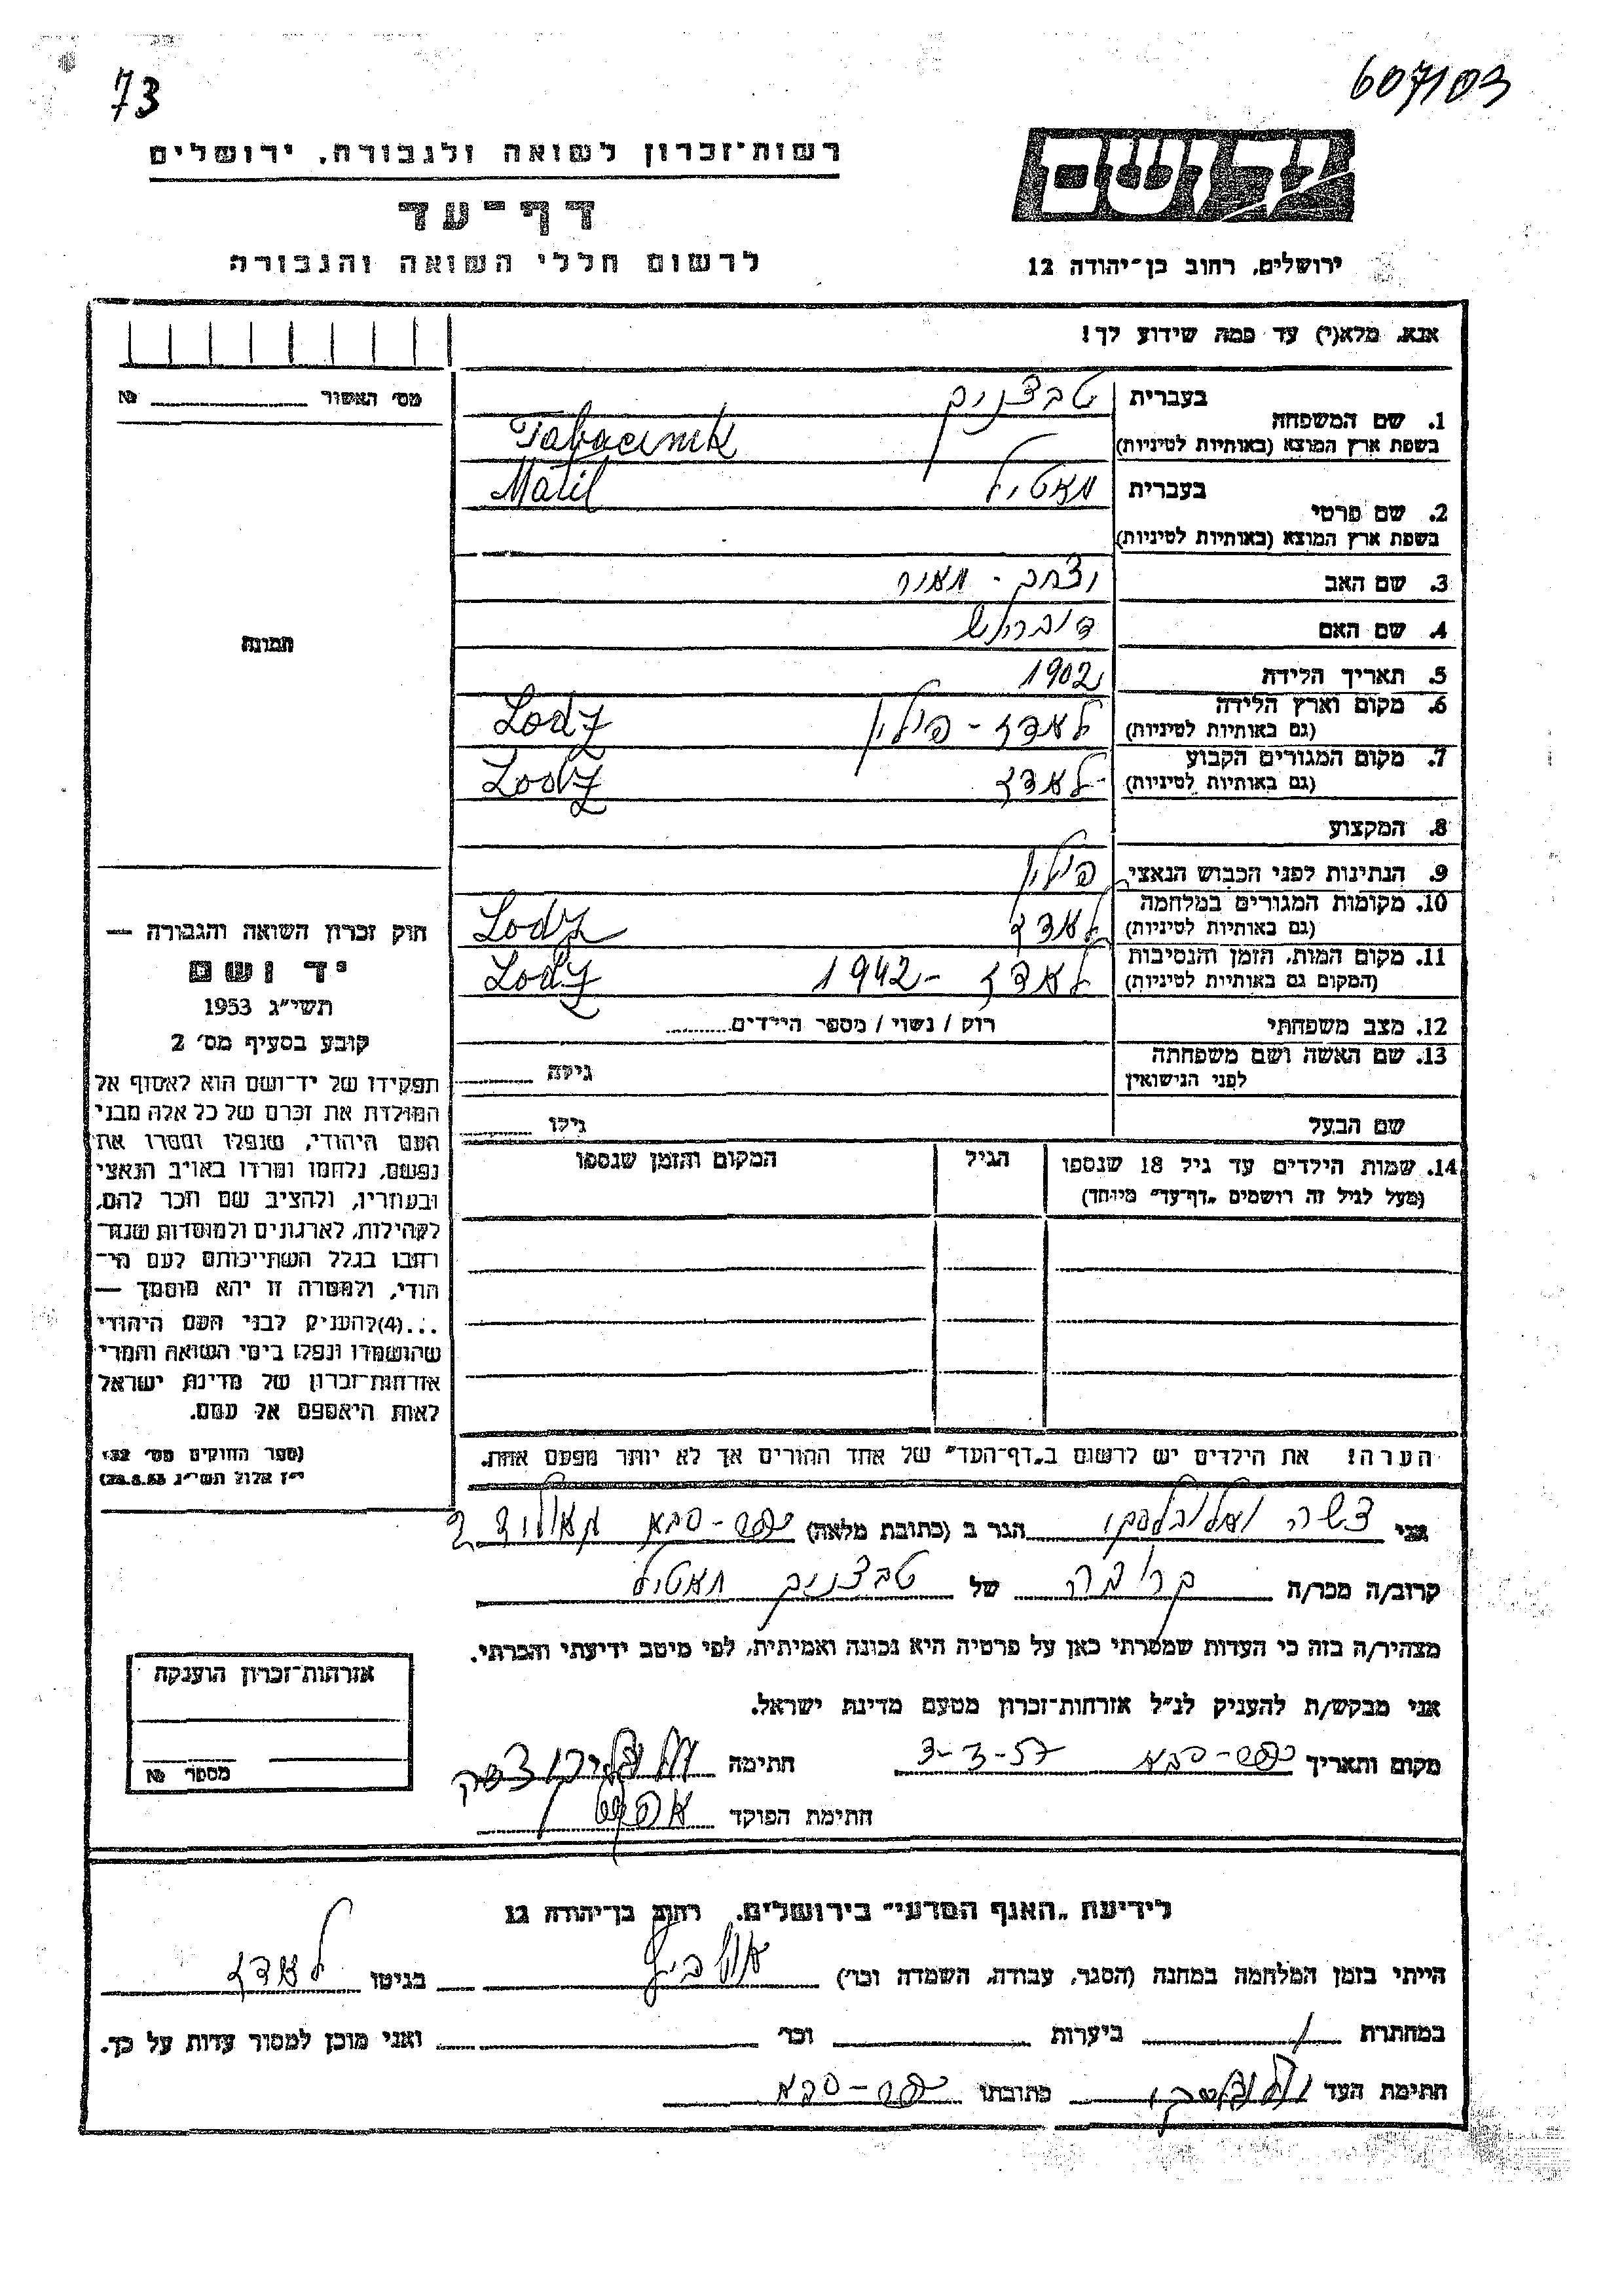 73
607103
רשות־זכרון לשואה ולגבורה, ירושלים
דף־עד
לרשום חללי השואה והגבורה
יד ושם
ירושלים, רחוב בן־יהודה 12
אנא, מלא(י) עד כמה שידוע לך!
מס׳ האשור № 
1. שם המשפחה
בעברית טבצניק
בשפת ארץ המוצא (באותיות לטיניות) Tabacznik
2. שם פרטי
בעברית מאטיל Matil
בשפת ארץ המוצא (באותיות לטיניות)
3. שם האב יצחק - מאיר
4. שם האם
5. תאריך הלידה 1902
6. מקום וארץ הלידה
(גם באותיות לטיניות) לאדז - פולין Lodz
7. מקום המגורים הקבוע
(גם באותיות לטיניות) לאדז Lodz
8. המקצוע
9. הנתינות לפני הכבוש הנאצי פולין
10. מקומות המגורים במלחמה
(גם באותיות לטיניות) לאדז Lodz
11. מקום המות, הזמן והנסיבות
(המקום גם באותיות לטיניות) לאדז - 1942 Lodz
12. מצב משפחתי רוק / נשוי / מספר הילדים
13. שם האשה ושם משפחתה
לפני הנישואין גילה
שם הבעל גילו
14. שמות הילדים עד גיל 18 שנספו
(מעל לגיל זה רושמים „דף־עד״ מיוחד)
הגיל
המקום והזמן שנספו
הערה! את הילדים יש לרשום ב„דף־העד״ של אחד ההורים אך לא יותר מפעם אחת.
תמונה
חוק זכרון השואה והגבורה —
יד ושם
תשי״ג 1953
קובע בסעיף מס׳ 2
תפקידו של יד־ושם הוא לאסוף אל
המולדת את זכרם של כל אלה מבני
העם היהודי, שנפלו ומסרו את
נפשם, נלחמו ומרדו באויב הנאצי
ובעוזריו, ולהציב שם וזכר להם,
לקהילות, לארגונים ולמוסדות שנח־
רבו בגלל השתייכותם לעם הי־
הודי, ולמטרה זו יהא מוסמך —
...(4)להעניק לבני העם היהודי
שהושמדו ונפלו בימי השואה והמרי
אזרחות־זכרון של מדינת ישראל
לאות היאספם אל עמם.
(ספר החוקים מס׳ 132
י״ז אלול תשי״ג 28.8.53)
אני הגר ב (כתובת מלאה) כפר-סבא
קרוב/ה מכר/ה קרובה של טבצניק מאטיל
מצהיר/ה בזה כי העדות שמסרתי כאן על פרטיה היא נכונה ואמיתית, לפי מיטב ידיעתי והכרתי.
אני מבקש/ת להעניק לנ״ל אזרחות־זכרון מטעם מדינת ישראל.
מקום ותאריך כפר-סבא 3-3-57 חתימה
חתימת הפוקד
אזרחות־זכרון הוענקה
מספר №
לידיעת „האגף המדעי״ בירושלים, רחוב בן־יהודה 12
הייתי בזמן המלחמה במחנה (הסגר, עבודה, השמדה וכו׳) בגיטו לאדז
במחתרת ביערות וכו׳ ואני מוכן למסור עדות על כך.
חתימת העד כתובתו כפר-סבא